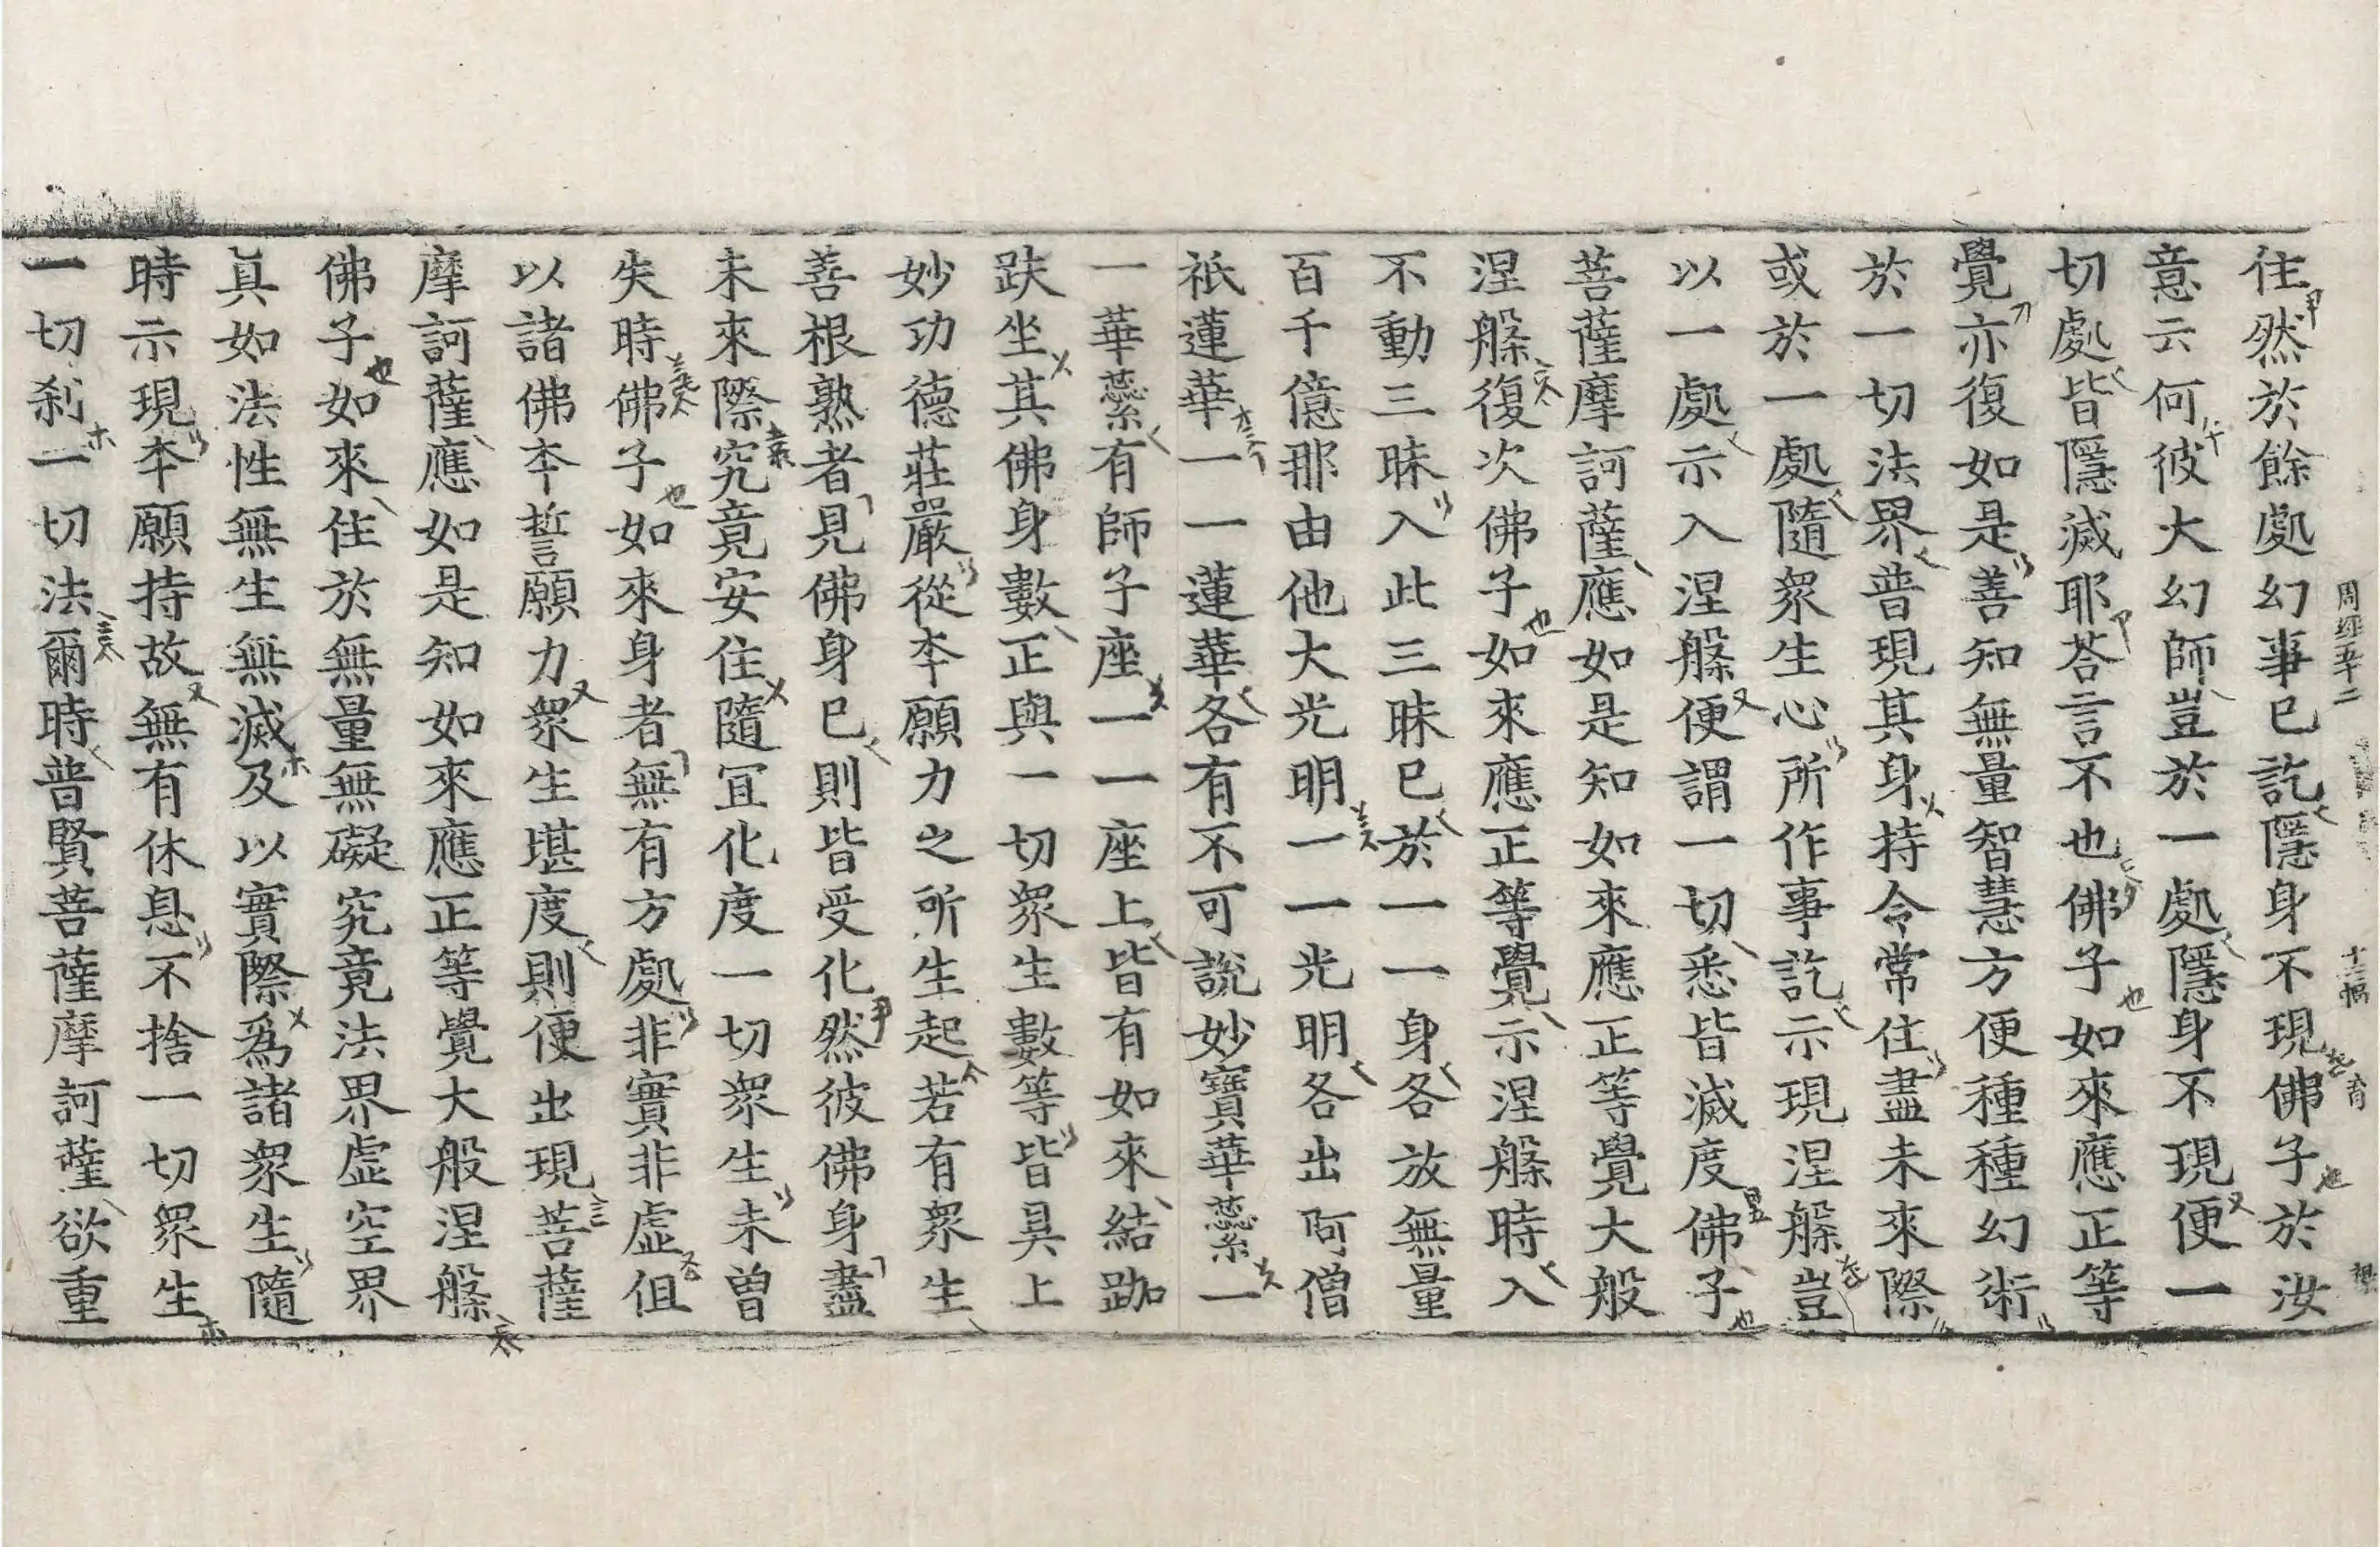 住然於餘處幻事已訖隱身不現佛子於汝
意云何彼大幻師豈於一處隱身不現便一
切處皆隱滅耶荅言不也佛子如來應正等
覺亦復如是善知無量智慧方便種種幻術
於一切法界普現其身持令常住盡未來際
或於一處隨衆生心所作事訖示現涅槃豈
以一處示入涅槃便謂一切悉皆滅度佛子
菩薩摩訶薩應如是知如來應正等覺大般
涅槃復次佛子如來應正等覺示涅槃時入
不動三昧入此三昧已於一一身各放無量
百千億那由他大光明一一光明各出阿僧
祇蓮華一一蓮華各有不可說妙寶華蘂一
一華蘂有師子座一一座上皆有如來結跏
趺坐其佛身數正與一切衆生數等皆具上
妙功德莊嚴從本願力之所生起若有衆生
善根熟者見佛身已則皆受化然彼佛身盡
未來際究竟安住隨宜化度一切衆生未曾
失時佛子如來身者無有方處非實非虛但
以諸佛本誓願力衆生堪度則便出現菩薩
摩訶薩應如是知如來應正等覺大般涅槃
佛子如來住於無量無礙究竟法界虛空界
眞如法性無生無滅及以實際爲諸衆生隨
時示現本願持故無有休息不捨一切衆生
一切刹一切法爾時普賢菩薩摩訶薩欲重
周經五十二
十三幅